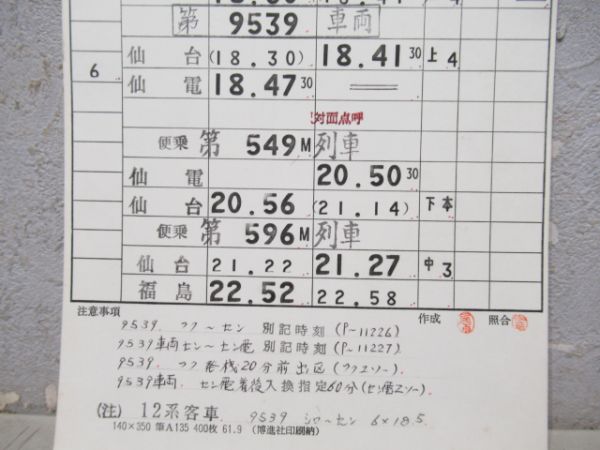 第 9539 車両
仙台 (18.30) 18.41 30 上4
6
仙電 18.47 30
対面点呼
便乗 第 549M 列車
仙電 20.50 30
仙台 20.56 (21.14) 下本
便乗 第 596M 列車
仙台 21.22 21.27 中3
福島 22.52 22.58
注意事項 作成 照合
9539. フク〜セン 別記時刻 (P-11226)
9539車両セン〜セン電 別記時刻 (P-11227)
9539. フク発 20分前出区 (フクエソー)
9539車両. セン電着後入換指定60分
(注) 12系客車 9539 〜セン 6×18.5
140×350 筆A135 400枚 61.9 (博進社印刷納)